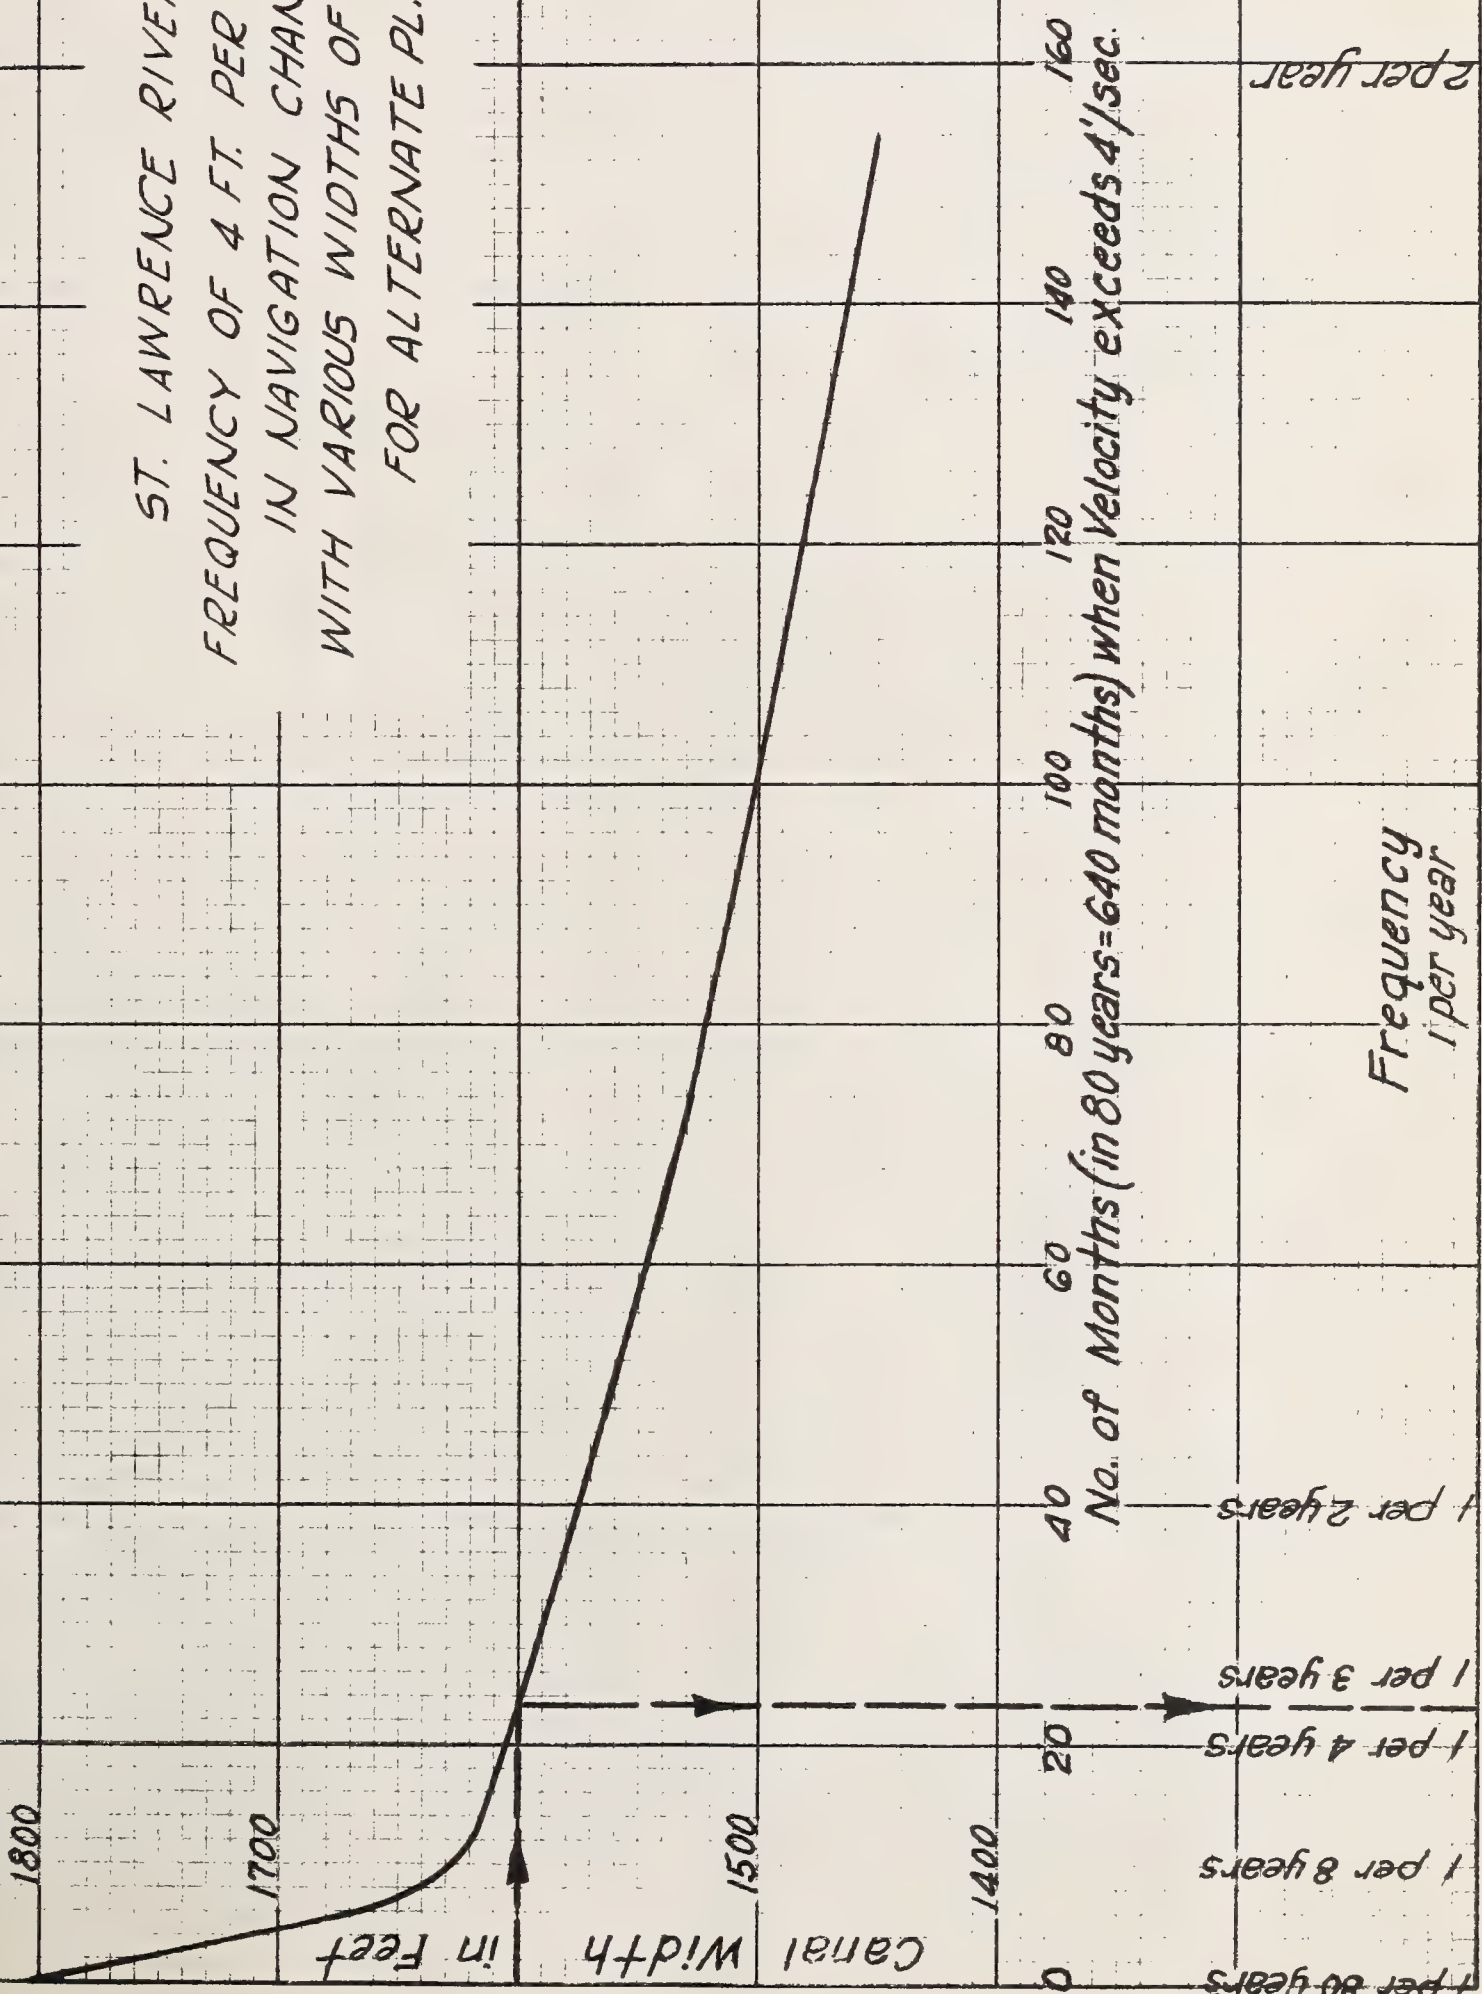 ST. LAWRENCE RIVE
FREQUENCY OF 4 FT. PER
IN NAVIGATION CHAN
WITH VARIOUS WIDTHS OF
FOR ALTERNATE PL.
1800
1700
1500
1400
Canal Width in Feet
0 20 40 60 80 100 120 140 160
No. of Months (in 80 years=640 months) when Velocity exceeds 4'/sec.
Frequency
1 per 80 years
1 per 8 years
1 per 4 years
1 per 3 years
1 per 2 years
1 per year
2 per year